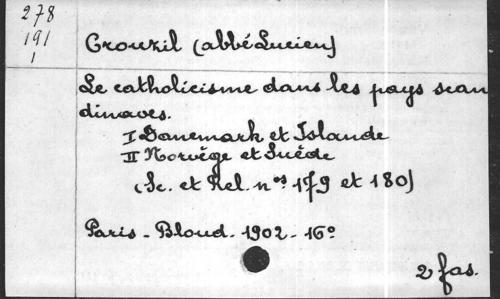 278
191
1
Crouzil (abbé Lucien)
Le catholicisme dans les pays scan
dinaves.
I Danemark et Islande
II Norvège et Suède
(Sc. et Rel. nos 179 et 180)
Paris - Bloud - 1902 - 16°
2 fas.